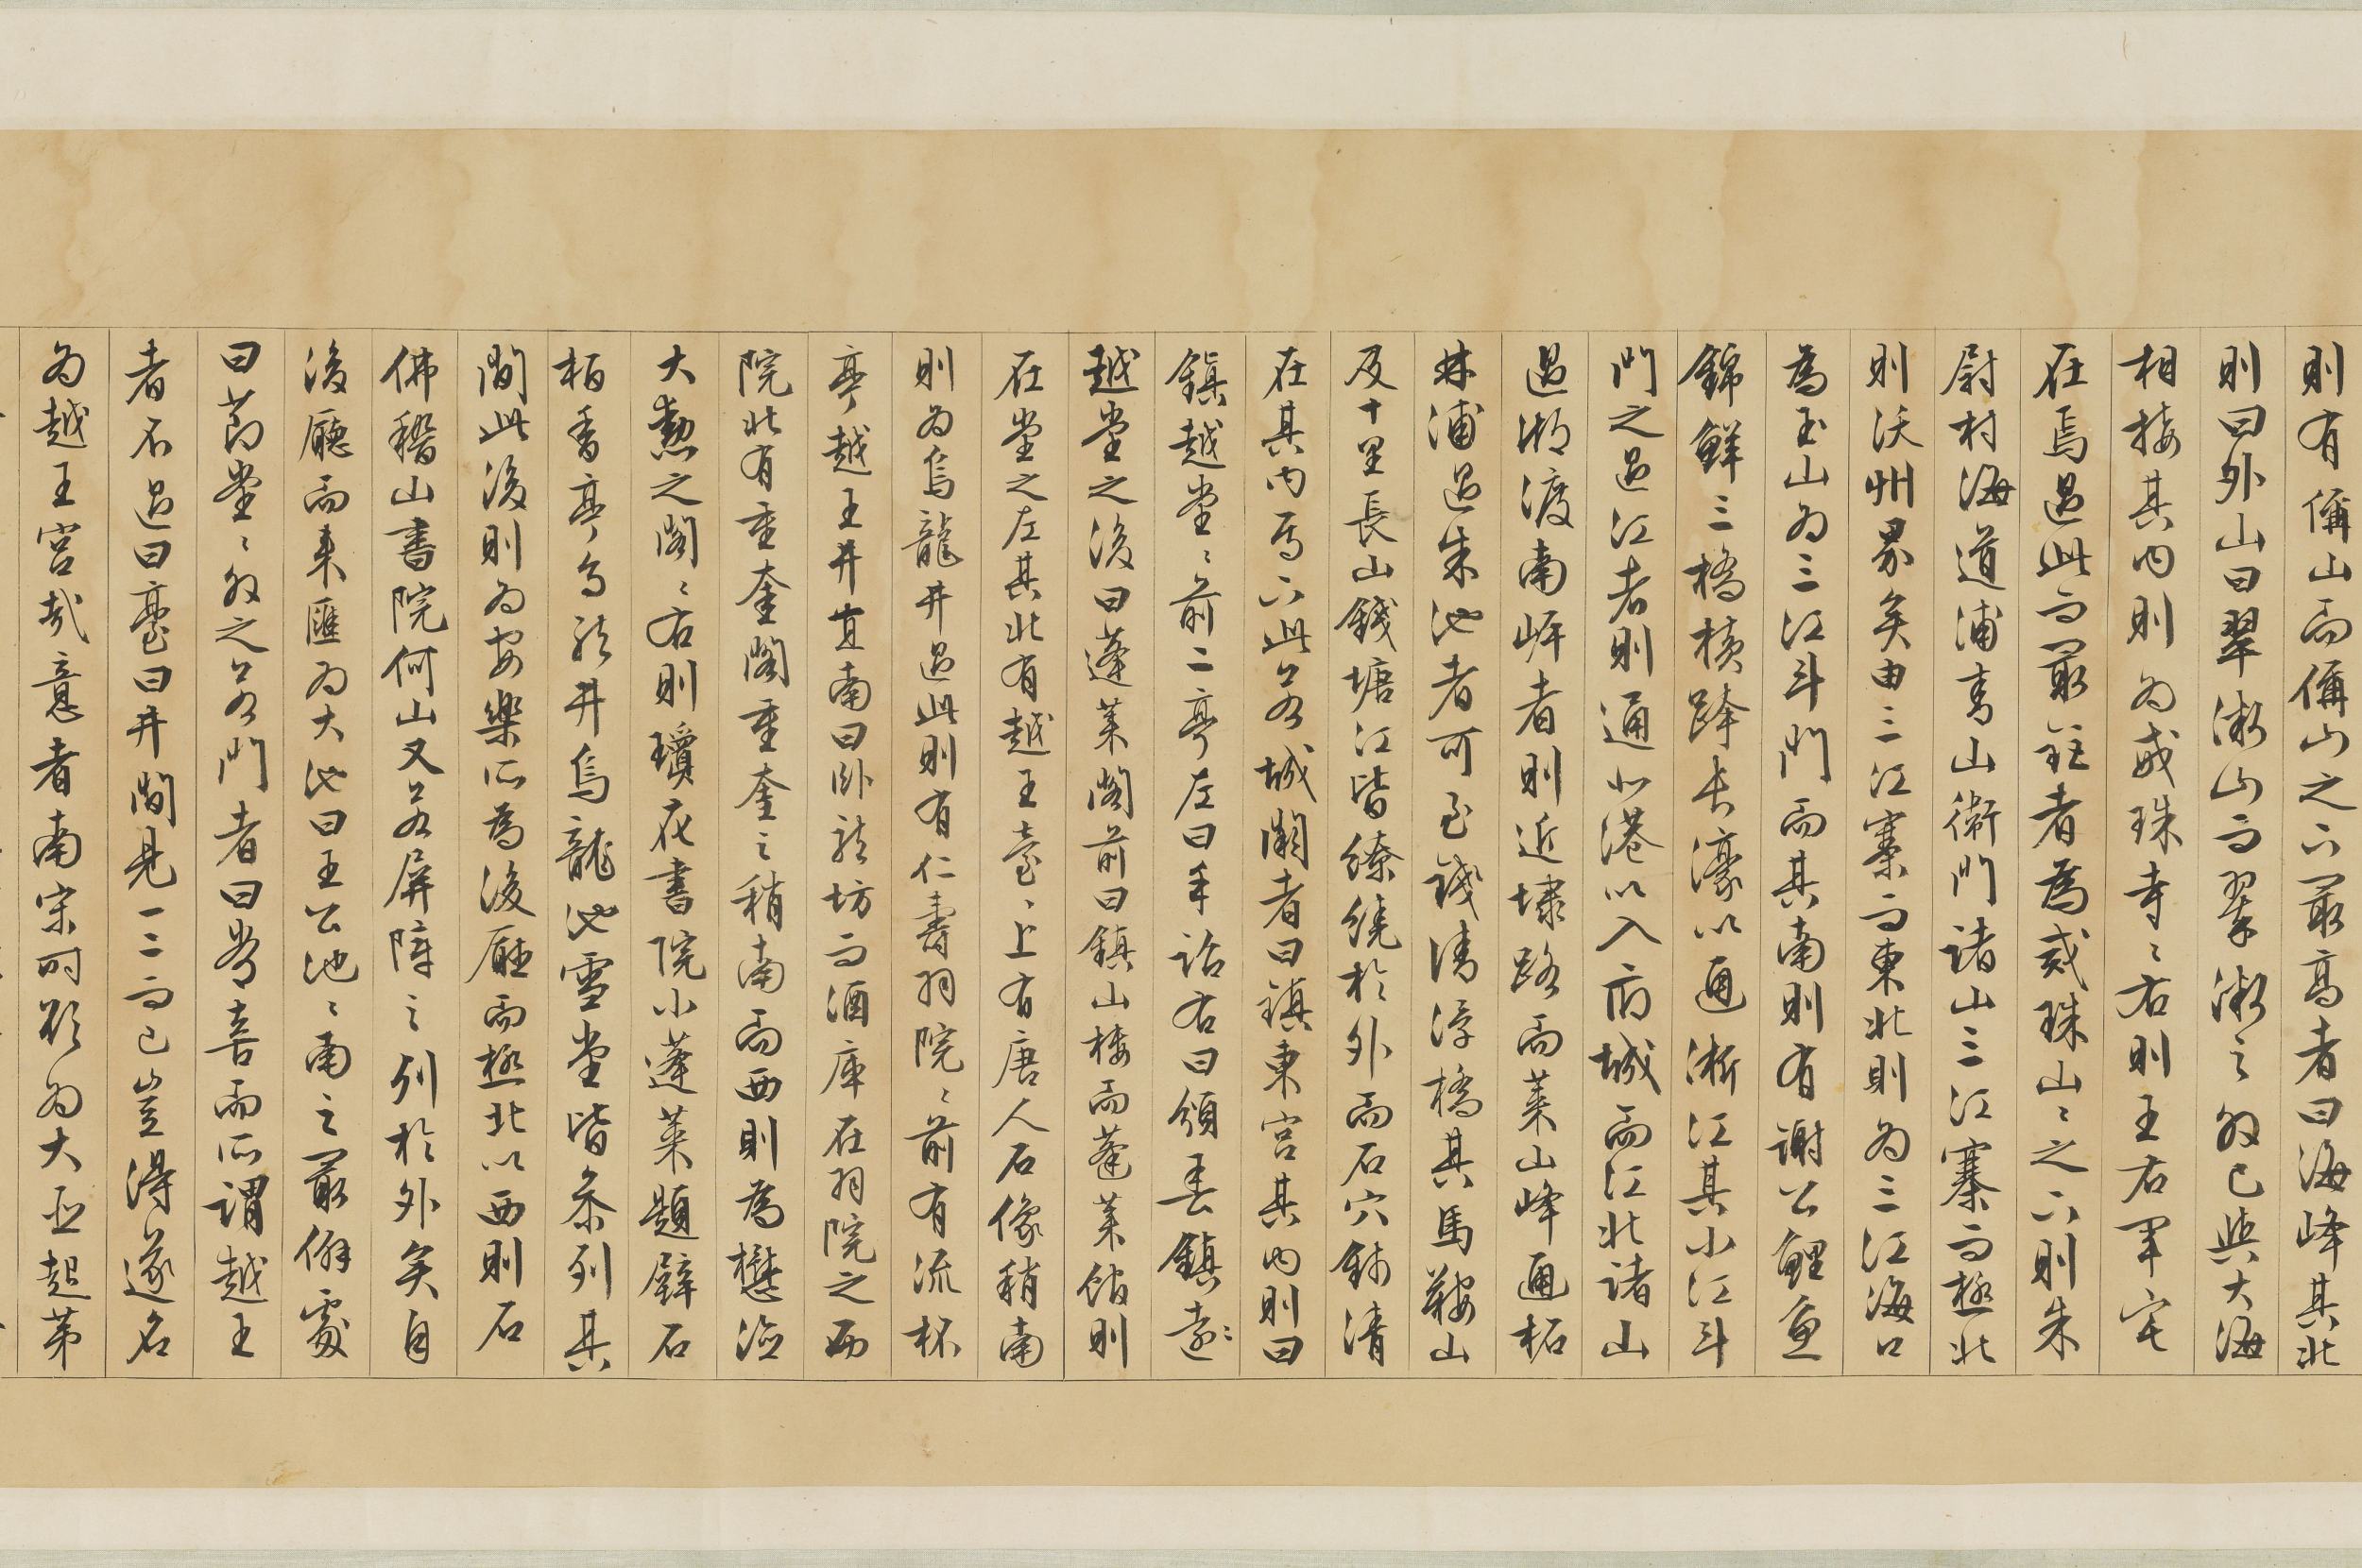 則有偁山而偁山之下最高者曰海峰其北
則曰外山曰翠漵山而翠漵之外已與大海
相接其内則為戒珠寺〻右則王右軍宅
在焉過此而最鉅者為戒珠山〻之下則朱
尉村海道浦青山衛門諸山三江寨而極北
則沃州界矣由三江寨而東北則為三江海口
為玉山為三江斗門而其南則有謝公鯉魚
錦鱗三橋橫跨長濠以通淅江其小江斗
門之過江者則通小港以入府城而江北諸山
過湘渡南岸者則近埭路而萊山峰通柘
林浦過朱池者可至錢清浮橋其馬鞍山
及十里長山錢塘江皆繚繞於外而石穴錢清
在其内焉下此若城闕者曰鎮東宮其内則曰
鎮越堂〻前二亭左曰手詔右曰頒春鎮
越堂之後曰蓬萊閣前曰鎮山樓而蓬萊館則
在堂之左其北有越王臺〻上有唐人石像稍南
則為烏龍井過此則有仁壽羽院〻前有流杯
亭越王井其南曰卧龍坊而酒庫在羽院之西
院北有重奎閣重奎之稍南而西則為懋
大勲之閣〻右則瓊花書院小蓬萊題壁石
柏香亭烏龍井烏龍池雪堂皆參列其
間此後則為安樂所為後廳而極北以西則石
佛稽山書院何山又若屏障之列於外矣自
後廳而東匯為大池曰王公池〻南之最僻處
曰茚堂〻外之若門者曰常喜而所謂越王
者不過曰臺曰井間見一二而已豈得遂名
為越王宮哉意者南宋時欲為大丞起第